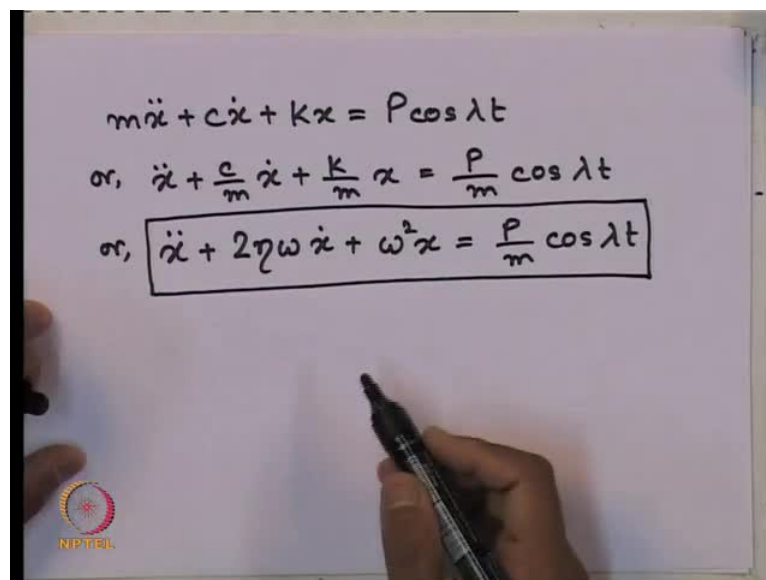 mẍ + cẋ + kx = P cos λt
or, ẍ + c/m ẋ + k/m x = P/m cos λt
or, ẍ + 2ηω ẋ + ω²x = P/m cos λt
NPTEL